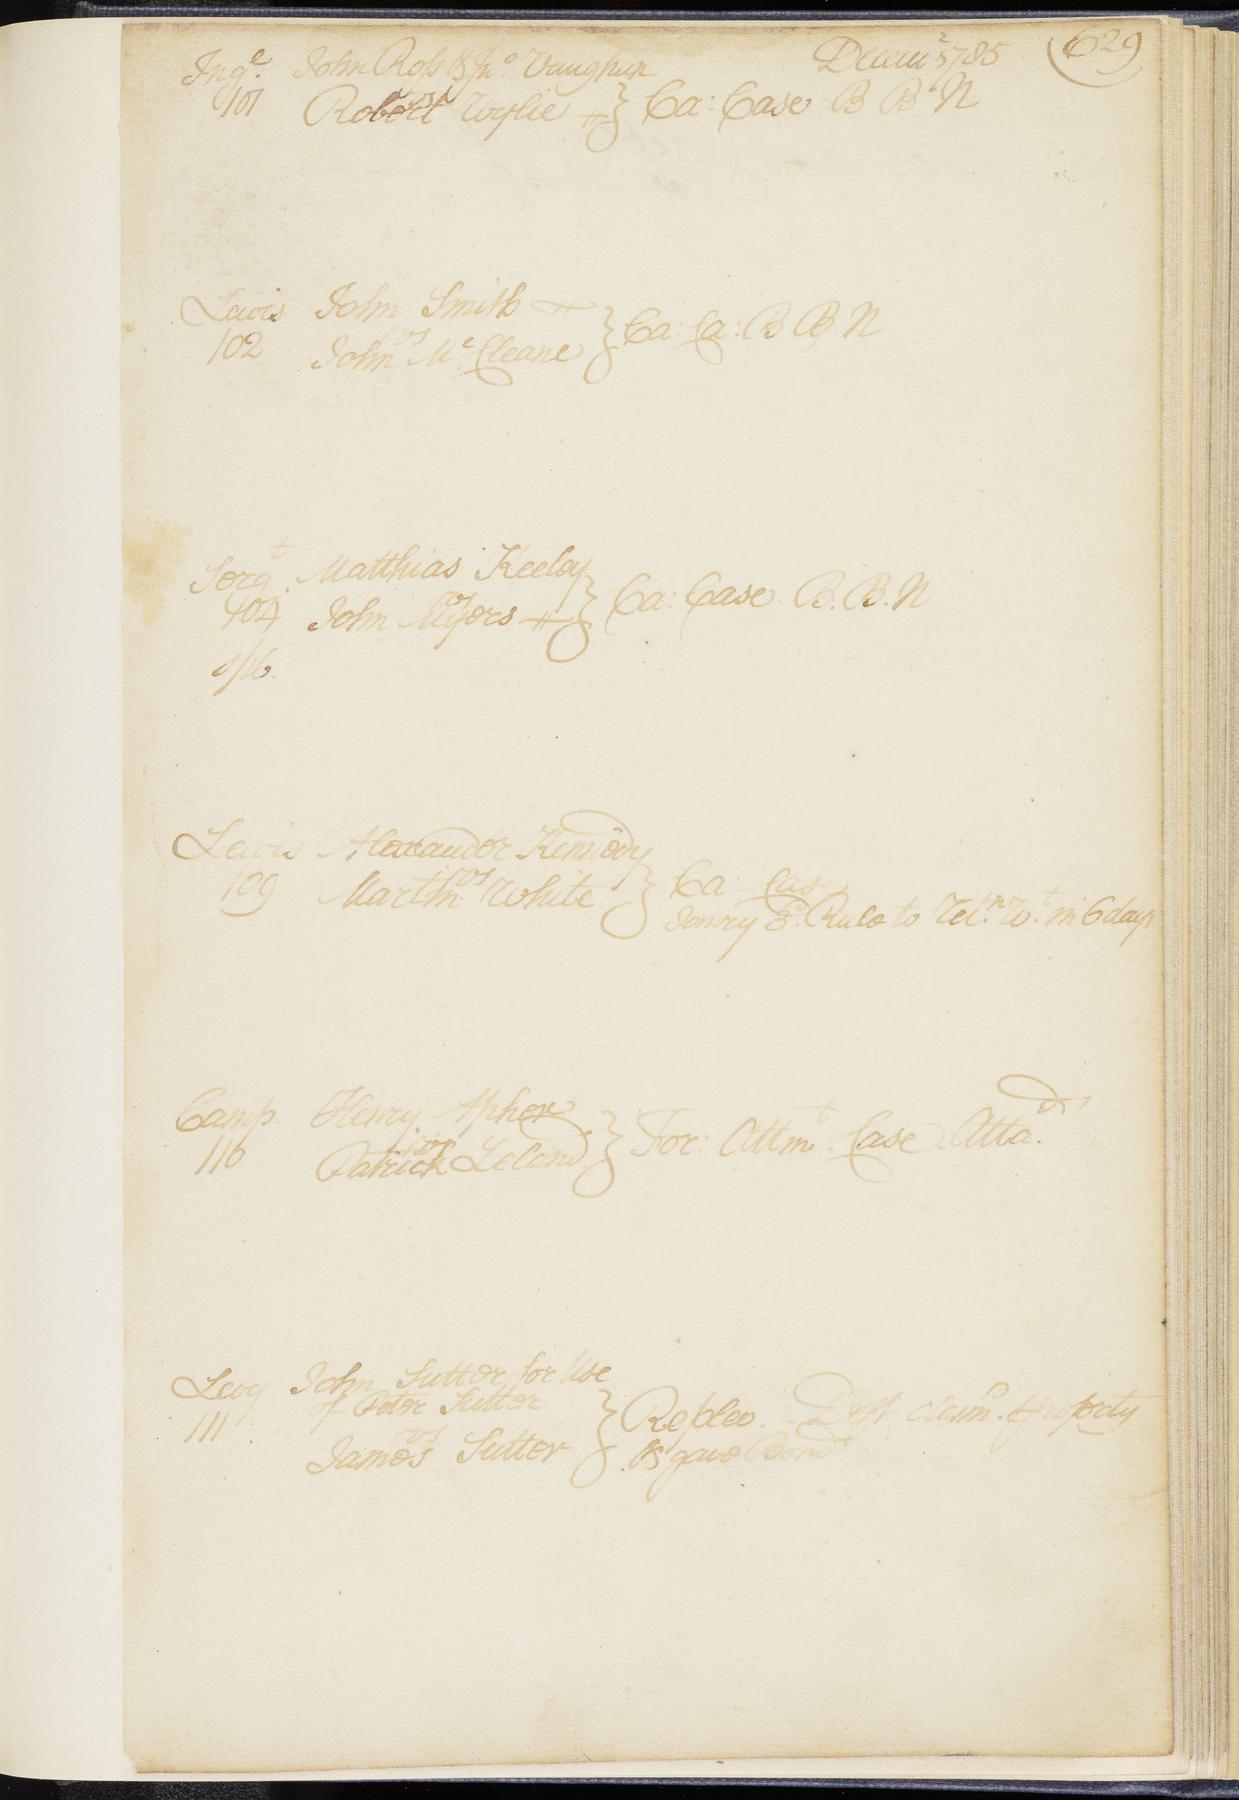 Decemr 1785 629
Inge. John Ross & Jno Vaughan
101 vs
Robert Wylie # } Ca: Case B B N
Lewis John Smith #
102 vs } Ca: Ca: B B N
John Mc Cleane
Sergt. Matthias Keeley
104 vs } Ca: Case B. B. N
John Myers #
Lewis Alexander Kennedy
109 vs } Ca Case
Marthw White
Janry 3d. Rule to Retn. Wt. in 6 days
Camp. Henry Apher
116 vs } For: Attmt. Case Attad.
Patrick Leland
Levy John Sutter for Use
of Peter Sutter
111 vs } Replev. Deft claimd. property
James Sutter & gave Bond